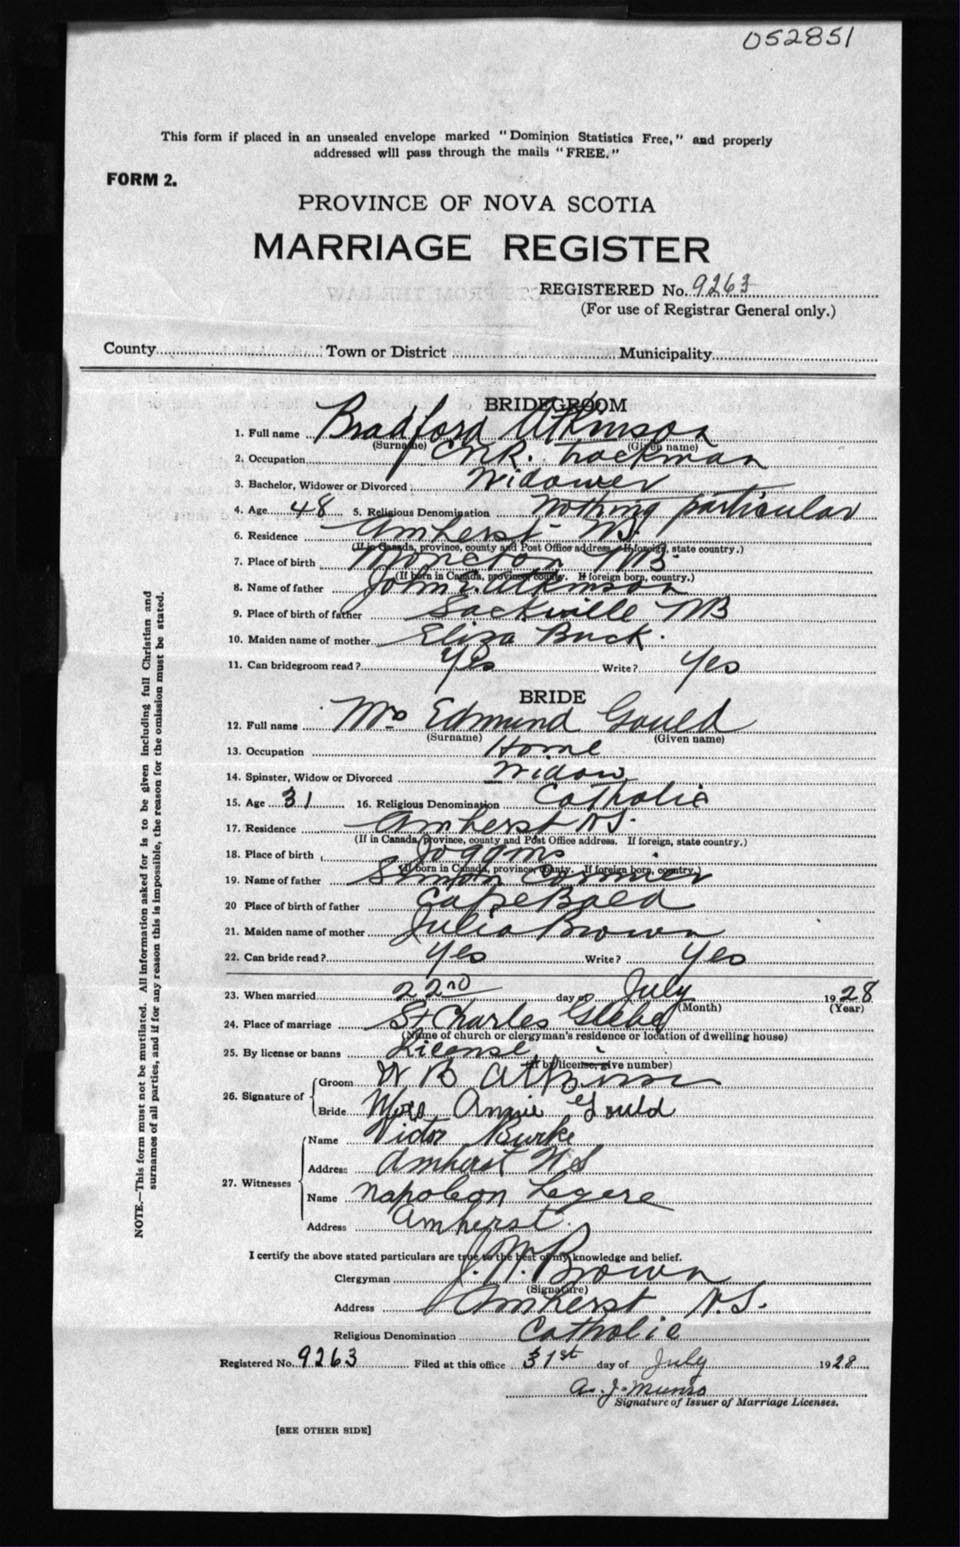 052851
This form if placed in an unsealed envelope marked "Dominion Statistics Free," and properly
addressed will pass through the mails "FREE."
FORM 2.
PROVINCE OF NOVA SCOTIA
MARRIAGE REGISTER
REGISTERED No. 9263
(For use of Registrar General only.)
County Town or District Municipality
BRIDEGROOM
1. Full name Bradford Atkinson
(Surname) (Given name)
2. Occupation CNR. Trackman
3. Bachelor, Widower or Divorced Widower
4. Age 48 5. Religious Denomination Nothing particular
6. Residence Amherst N.S.
(If in Canada, province, county and Post Office address. If foreign, state country.)
7. Place of birth Moncton NB
(If born in Canada, province, county. If foreign born, country.)
8. Name of father John Atkinson
9. Place of birth of father Sackville NB
10. Maiden name of mother Eliza Buck.
11. Can bridegroom read? Yes Write? Yes
BRIDE
12. Full name Mrs Edmund Gould
(Surname) (Given name)
13. Occupation Home
14. Spinster, Widow or Divorced Widow
15. Age 31 16. Religious Denomination Catholic
17. Residence Amherst N.S.
(If in Canada, province, county and Post Office address. If foreign, state country.)
18. Place of birth Joggins
(If born in Canada, province, county. If foreign born, country.)
19. Name of father Simon Cormier
20 Place of birth of father Cape Bald
21. Maiden name of mother Julia Brown
22. Can bride read? Yes Write? Yes
23. When married 22nd day of July 1928
(Month) (Year)
24. Place of marriage St Charles Glebe
(Name of church or clergyman's residence or location of dwelling house)
25. By license or banns License
(If by license, give number)
26. Signature of Groom W B Atkinson
Bride Mrs Annie Gould
27. Witnesses Name Victor Burke
Address Amherst N S
Name Napoleon Legere
Address Amherst.
I certify the above stated particulars are true to the best of my knowledge and belief.
Clergyman J. W. Brown
(Signature)
Address Amherst N.S.
Religious Denomination Catholic
Registered No. 9263 Filed at this office 31st day of July 1928
A. J. Munro
Signature of Issuer of Marriage Licenses.
[SEE OTHER SIDE]
NOTE.—This form must not be mutilated. All information asked for is to be given including full Christian and
surnames of all parties, and if for any reason this is impossible, the reason for the omission must be stated.